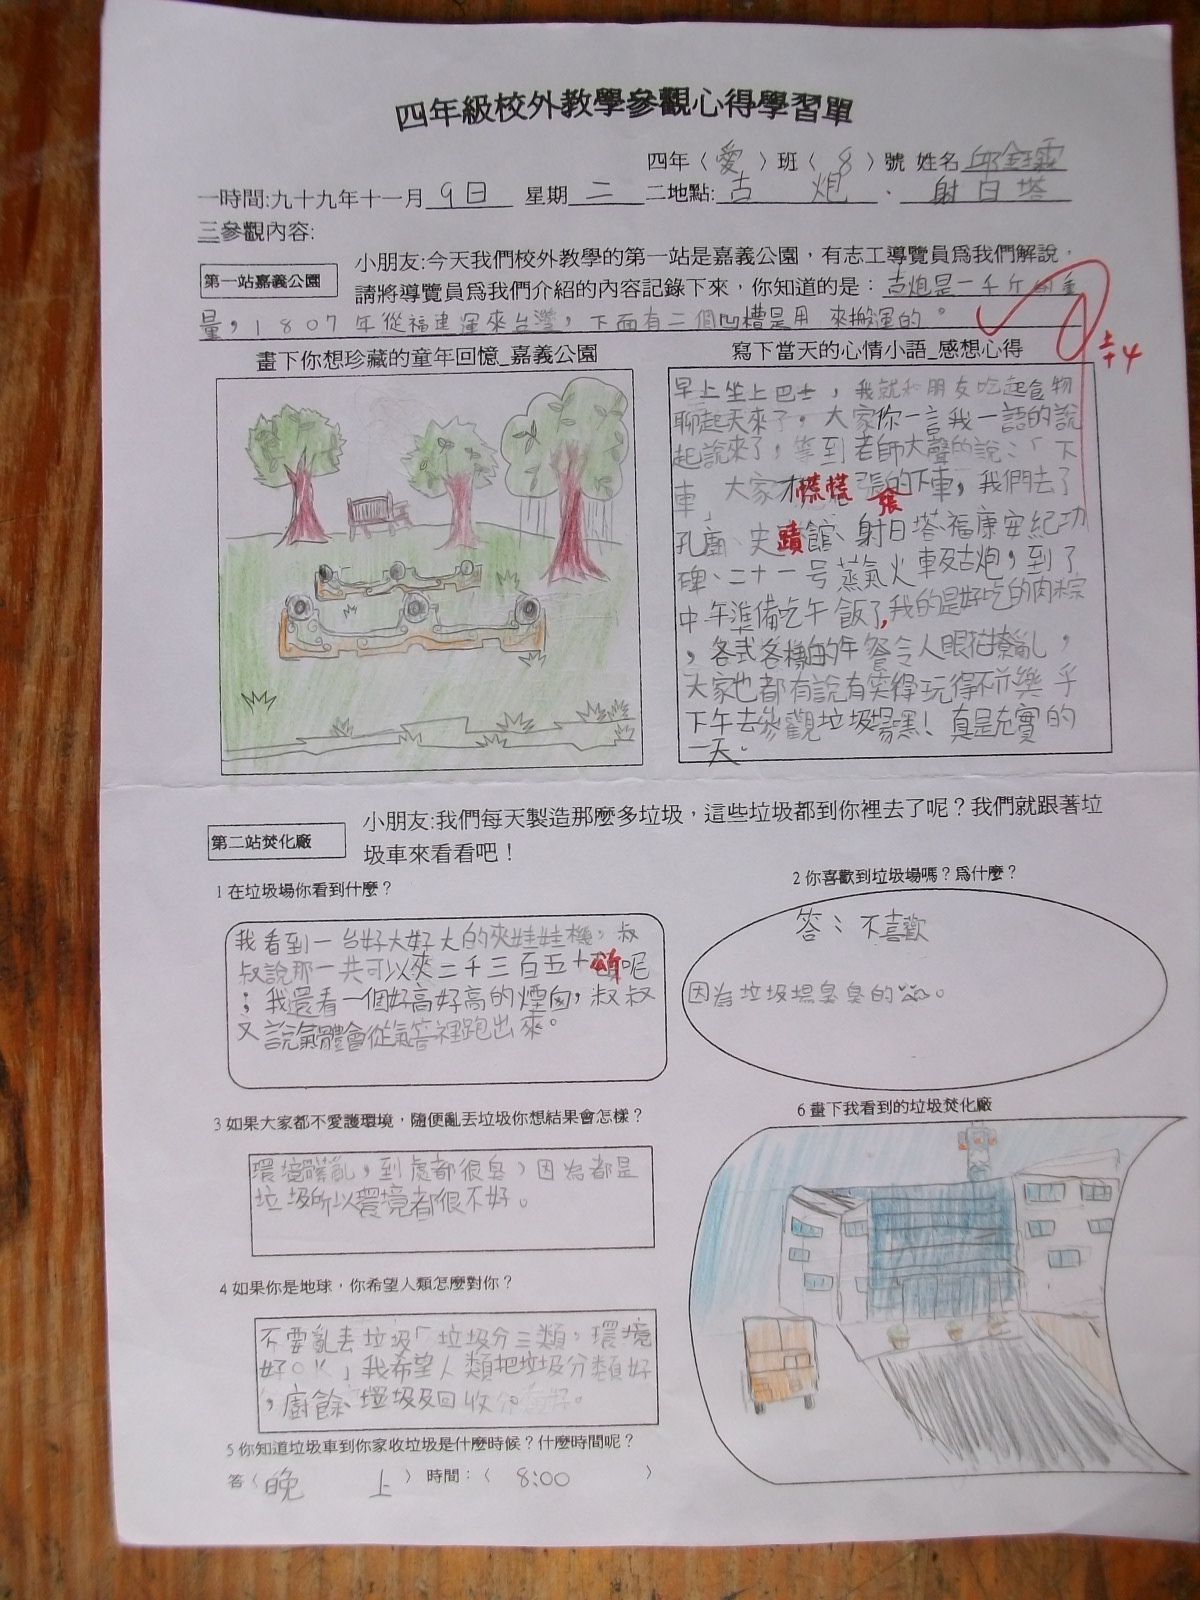 四年級校外教學參觀心得學習單
四年（愛）班（8）號 姓名邱鈺霖
一時間:九十九年十一月9日 星期二 二地點:古炮．射日塔
三參觀內容:
第一站嘉義公園
小朋友:今天我們校外教學的第一站是嘉義公園，有志工導覽員爲我們解說，
請將導覽員爲我們介紹的內容記錄下來，你知道的是：古炮是一千斤的重
量，1807年從福建運來台灣，下面有二個凹槽是用來搬運的。
畫下你想珍藏的童年回憶_嘉義公園
寫下當天的心情小語_感想心得
早上坐上巴士，我就和朋友吃起食物
聊起天來了。大家你一言我一語的說
起說來了，等到老師大聲的說：「下
車」大家才慌慌張張的下車，我們去了
孔廟、史蹟館、射日塔、福康安紀功
碑、二十一号蒸氣火車及古炮，到了
中午準備吃午飯了,我的是好吃的肉粽
，各式各樣的午餐令人眼花撩亂，
大家也都有說有笑得玩得不亦樂乎
下午去參觀垃圾場嘿！真是充實的
一天。
第二站焚化廠
小朋友:我們每天製造那麼多垃圾，這些垃圾都到你裡去了呢？我們就跟著垃
圾車來看看吧！
1在垃圾場你看到什麼？
我看到一台好大好大的夾娃娃機，叔
叔說那一共可以夾二千三百五十公斤呢
；我還看一個好高好高的煙囪，叔叔
又說氣體會從氣管裡跑出來。
2你喜歡到垃圾場嗎？爲什麼？
答：不喜歡
因為垃圾場臭臭的。
3如果大家都不愛護環境，隨便亂丟垃圾你想結果會怎樣？
環境髒亂，到處都很臭，因為都是
垃圾所以環境都很不好。
4如果你是地球，你希望人類怎麼對你？
不要亂丟垃圾「垃圾分三類，環境
好OK」我希望人類把垃圾分類好
，廚餘、垃圾及回收分類好。
5你知道垃圾車到你家收垃圾是什麼時候？什麼時間呢？
答（晚上）時間：（8:00）
6畫下我看到的垃圾焚化廠